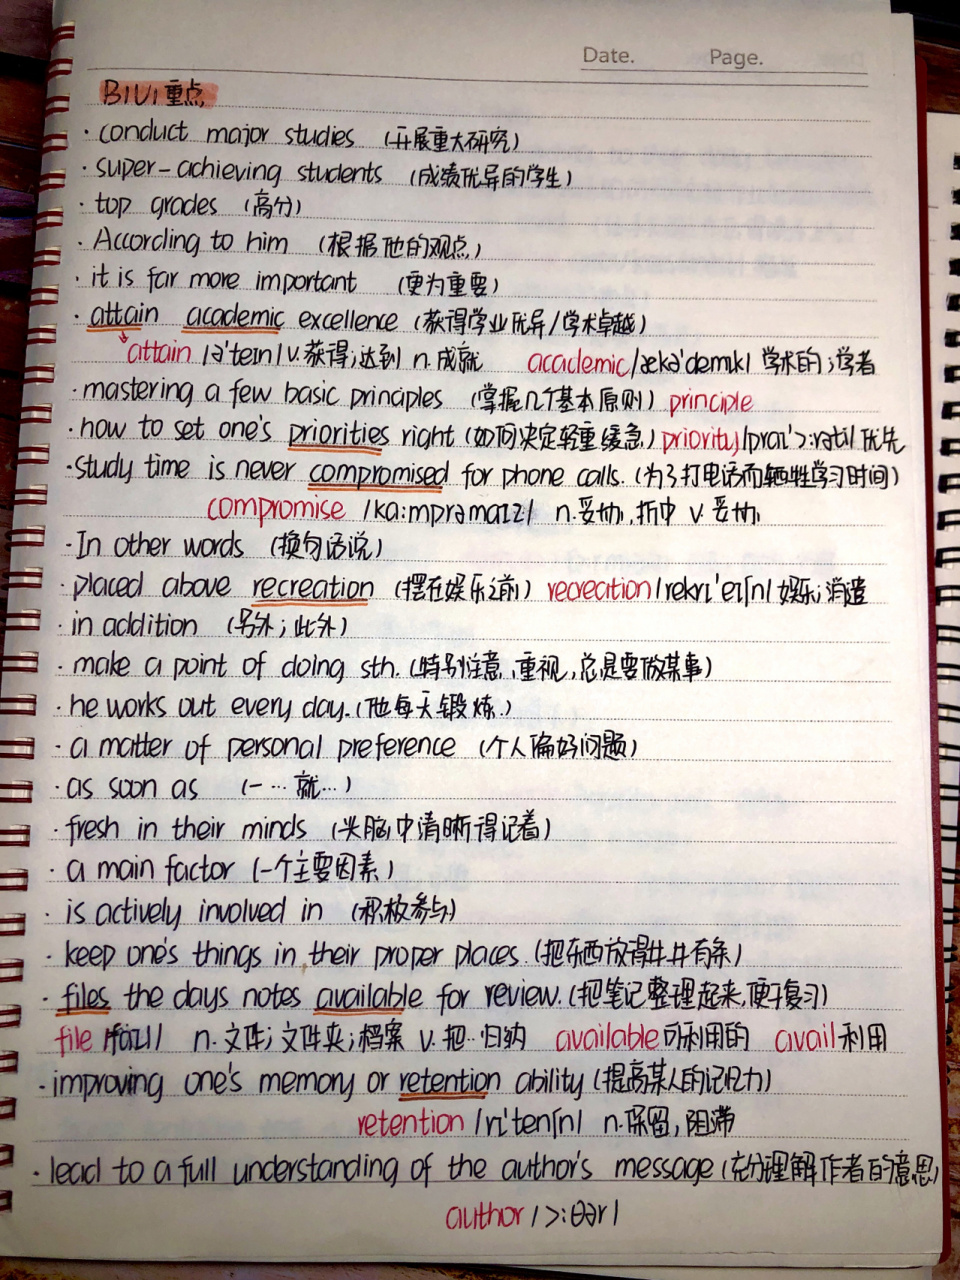 Date. Page.
B1U1重点
· conduct major studies (开展重大研究)
· super-achieving students (成绩优异的学生)
· top grades (高分)
· According to him (根据他的观点)
· it is far more important (更为重要)
· attain academic excellence (获得学业优异/学术卓越)
attain /ə'teɪn/ v.获得;达到 n.成就 academic /ækə'demɪk/ 学术的;学者
· mastering a few basic principles (掌握几个基本原则) principle
· how to set one's priorities right (如何决定轻重缓急) priority /praɪ'ɔ:rəti/ 优先
· study time is never compromised for phone calls. (为了打电话而牺牲学习时间)
compromise /kɑ:mprəmaɪz/ n.妥协,折中 v.妥协
· In other words (换句话说)
· placed above recreation (摆在娱乐之前) recreation /rekrɪ'eɪʃn/ 娱乐;消遣
· in addition (另外;此外)
· make a point of doing sth. (特别注意,重视,总是要做某事)
· he works out every day. (他每天锻炼.)
· a matter of personal preference (个人偏好问题)
· as soon as (一…就…)
· fresh in their minds (头脑中清晰得记着)
· a main factor (一个主要因素)
· is actively involved in (积极参与)
· keep one's things in their proper places. (把东西放得井井有条)
· files the days notes available for review. (把笔记整理起来,便于复习)
file /faɪl/ n.文件;文件夹;档案 v.把…归纳 available 可利用的 avail 利用
· improving one's memory or retention ability (提高某人的记忆力)
retention /rɪ'tenʃn/ n.保留,阻滞
· lead to a full understanding of the author's message (充分理解作者的意思)
author /ɔ:θər/